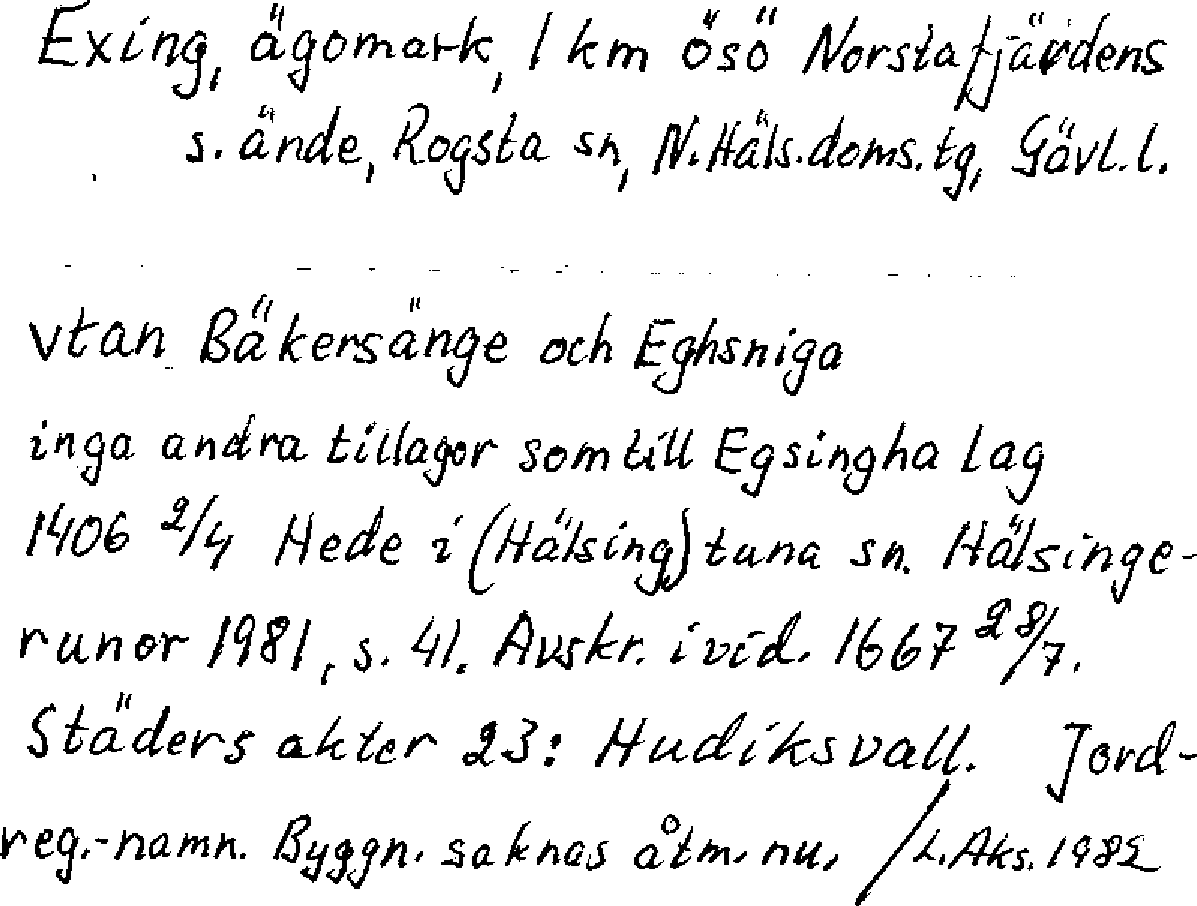 Exing, ägomark, 1 km ösö Norstafjärdens
s. ände, Rogsta sn, N. Häls. doms. tg, Gävl. l.
vtan Bäkersänge och Eghsniga
inga andra tillagor som till Egsingha Lag
1406 2/4 Hede i (Hälsing)tuna sn. Hälsinge-
runor 1981, s. 41. Avskr. i vid. 1667 28/7.
Städers akter 23: Hudiksvall. Jord-
reg.-namn. Byggn. saknas åtm. nu. / L. Aks. 1982